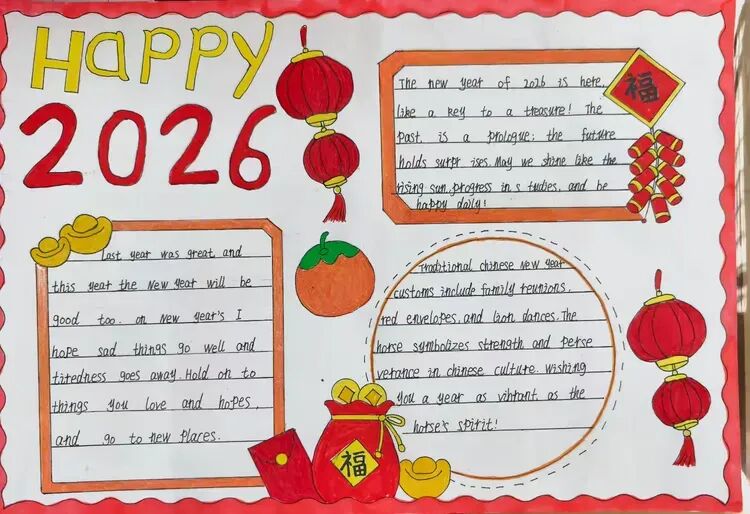 HAPPY
2026
The new year of 2026 is here,
like a key to a treasure! The
past is a prologue; the future
holds surpr ises. May we shine like the
rising sun, progress in s tudies, and be
happy daily!
福
Last year was great and
this year the New Year will be
good too. on New Year's I
hope sad things go well and
tiredness goes away. Hold on to
things you love and hopes,
and go to new places.
Traditional chinese New Year
customs include family reunions,
red envelopes, and lion dances. The
horse symbolizes strength and perse
verance in chinese culture. Wishing
you a year as vibrant as the
horse's spirit!
福